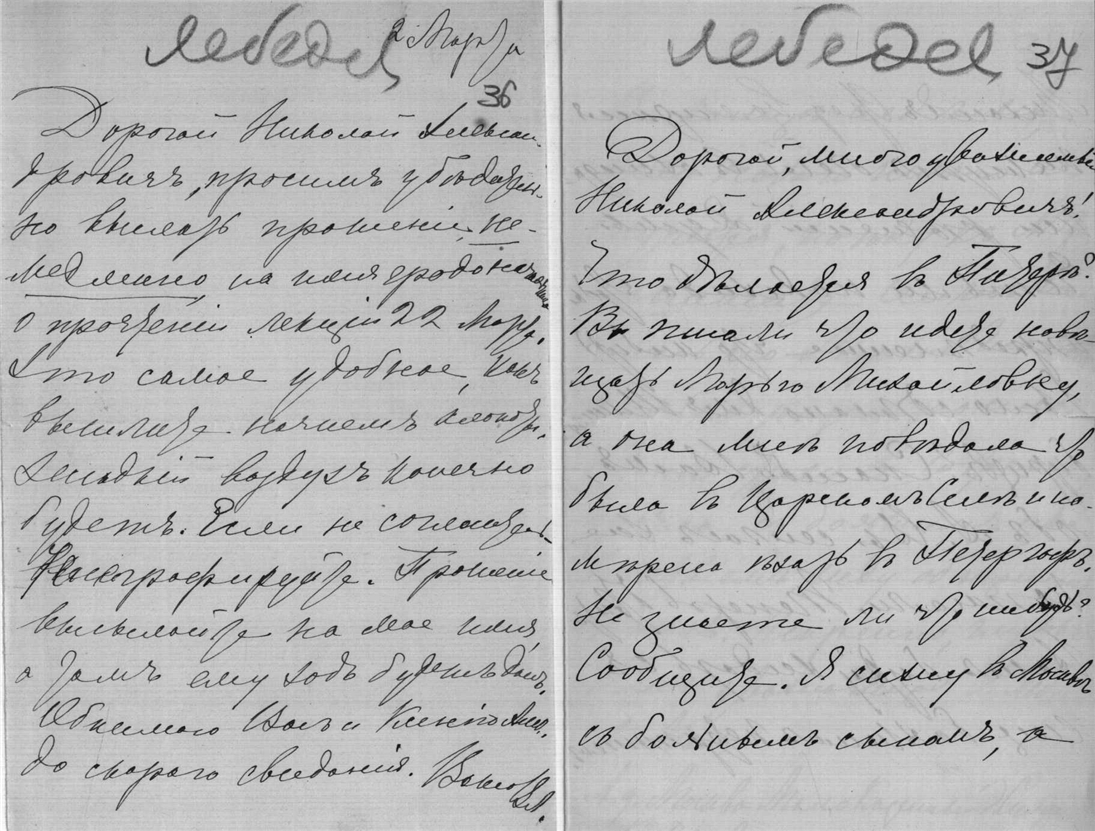 Лебедев
2 Марта
36
Дорогой Николай Алексан-
дровичъ, просимъ убѣдитель-
но выслать прошеніе, не-
медленно, на имя градоначальника
о прочтеніи лекціи 22 Марта.
Это самое удобное, какъ
вышлите начнемъ хлопоты.
воздухъ конечно
будетъ. Если не согласны
телеграфируйте. Прошеніе
высылайте на мое имя
а тамъ ему ходъ будетъ данъ.
Обнимаю Васъ и
до скораго свиданія. Вашъ
Лебедев
37
Дорогой, многоуважаемый
Николай Александровичъ!
Что дѣлается въ Питерѣ?
Вы писали что идете навѣ-
щать Марью Михайловну,
а она мнѣ повѣдала что
была въ Царскомъ Селѣ и на-
мѣрена ѣхать въ Петергофъ.
Не знаете ли что нибудь?
Сообщите. Я сижу въ Москвѣ
съ больнымъ сыномъ, а